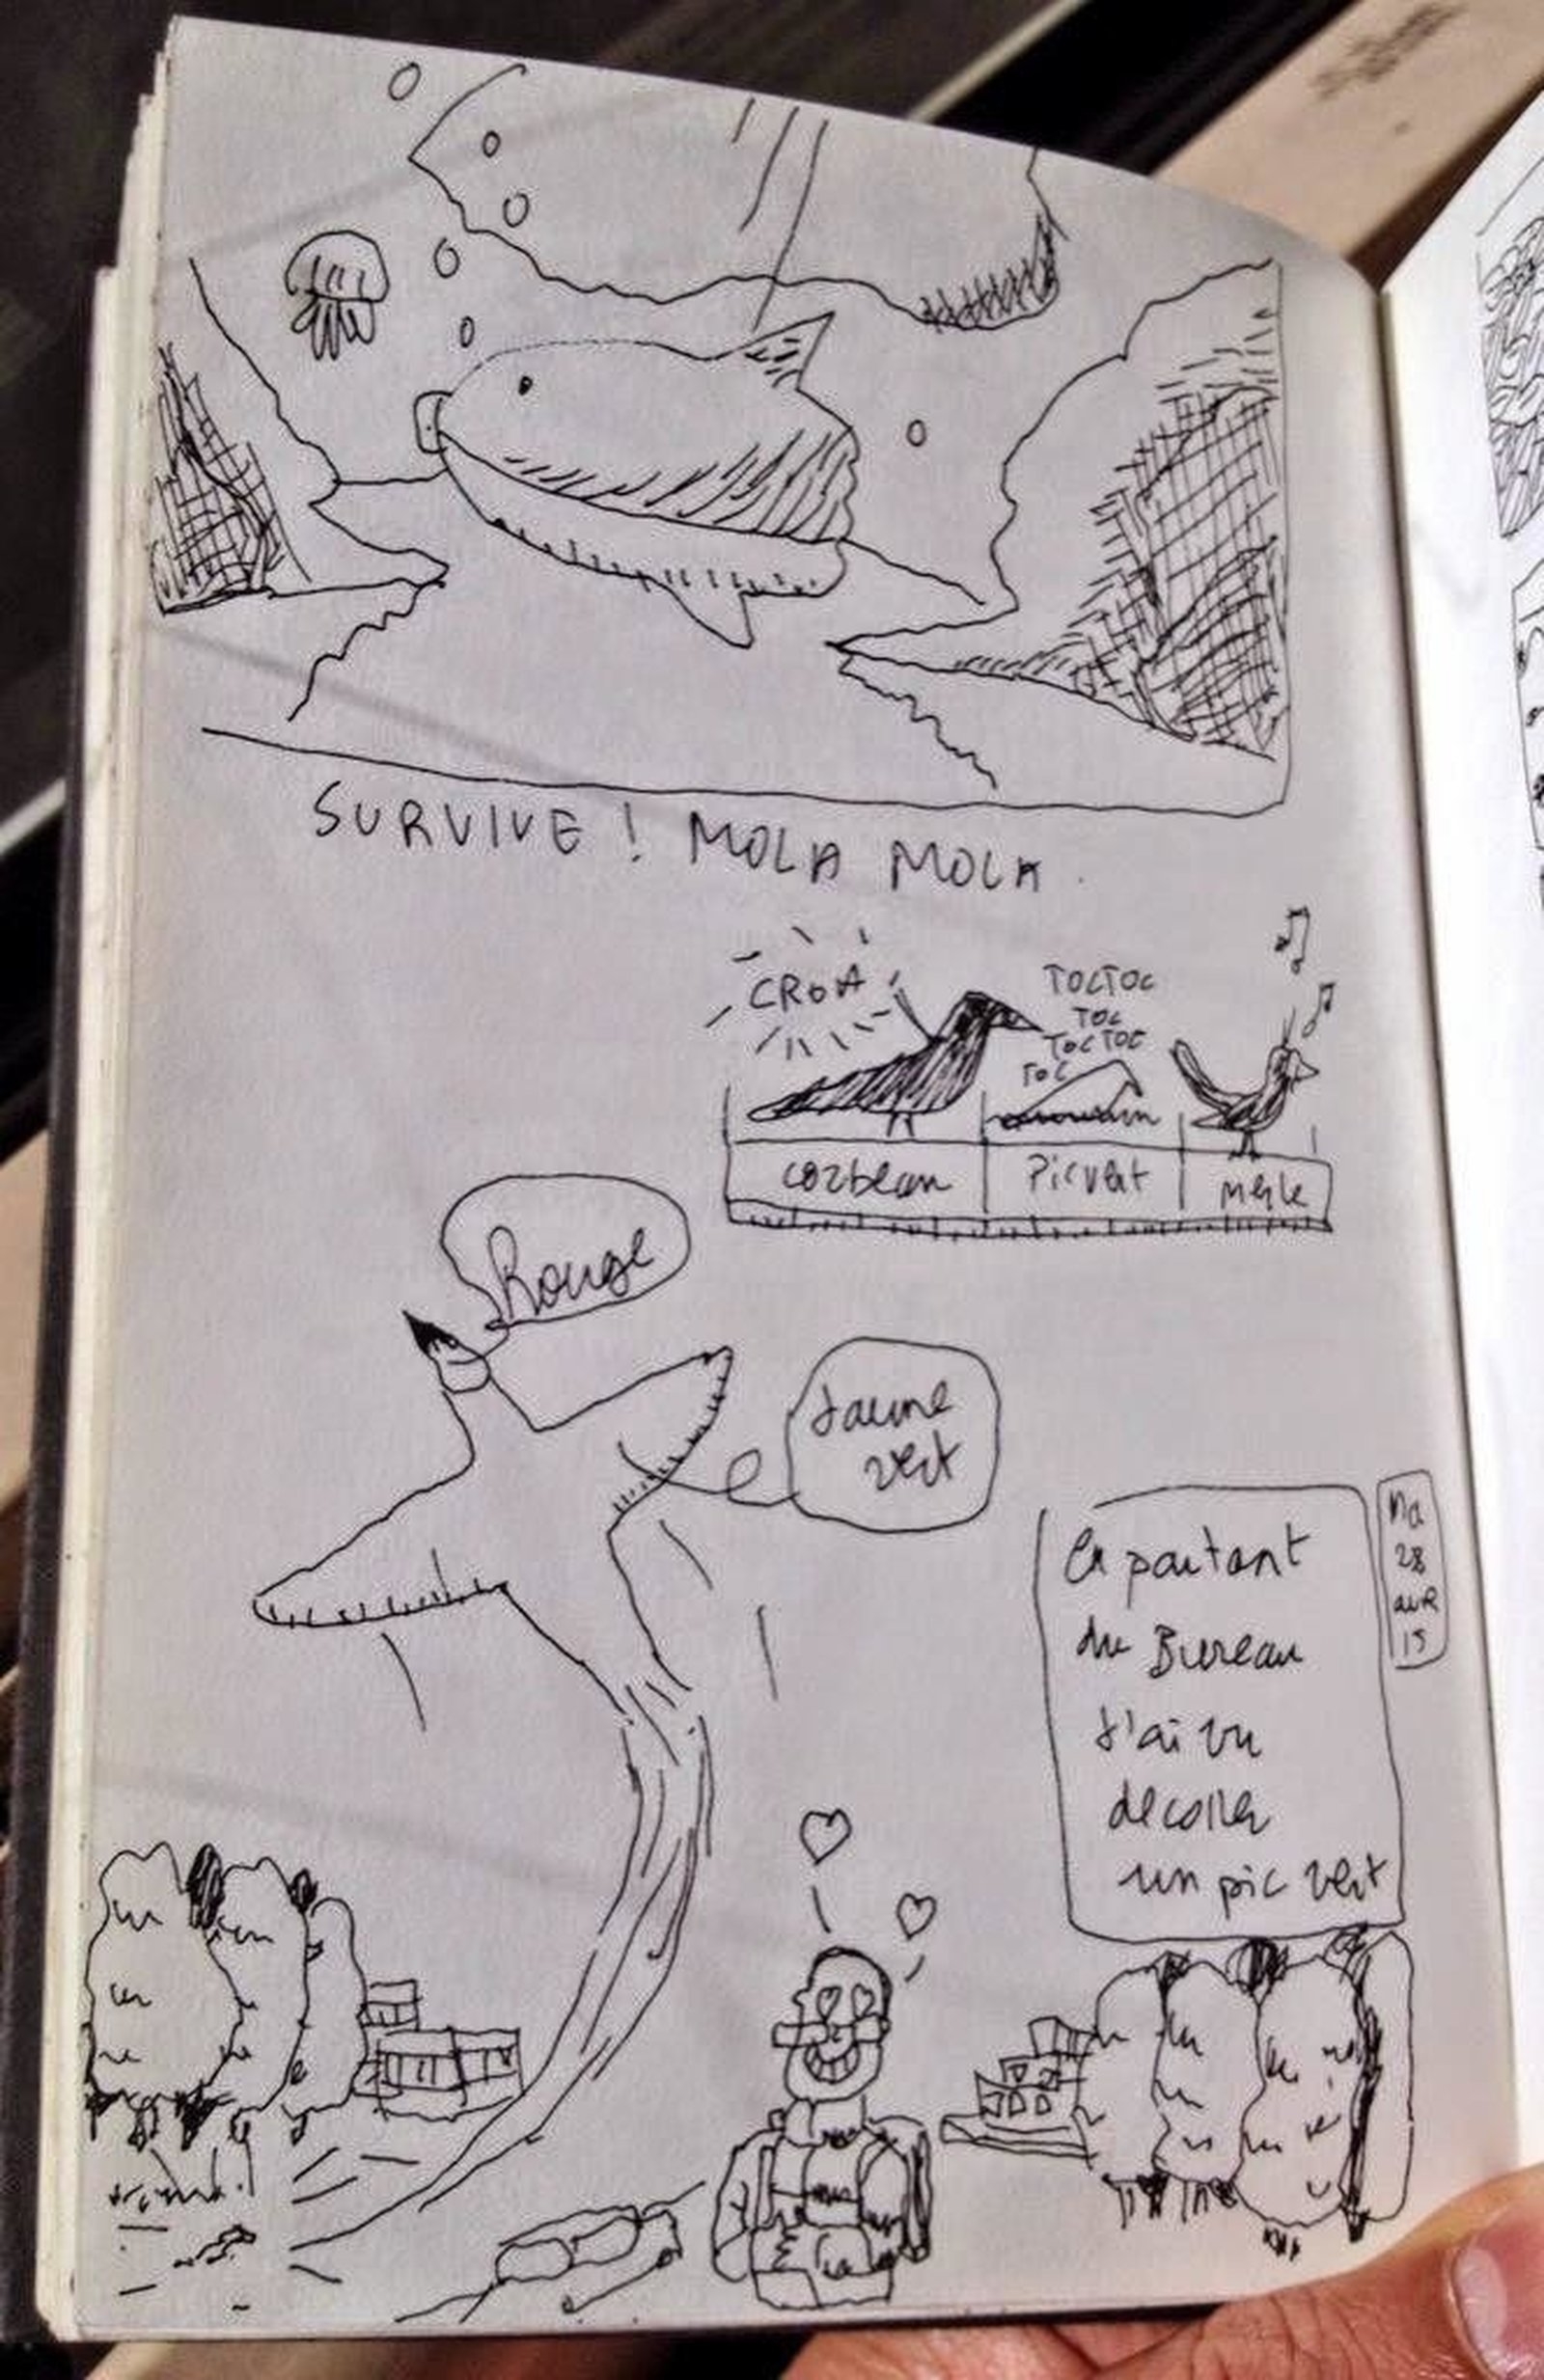 SURVIVE ! MOLA MOLA
CROA
TOCTOC
TOC
TOCTOC
TOC
corbeau
Picvert
Merle
Rouge
Jaune
vert
En partant
du Bureau
J'ai vu
decoller
un pic vert
Ma
28
avr
15